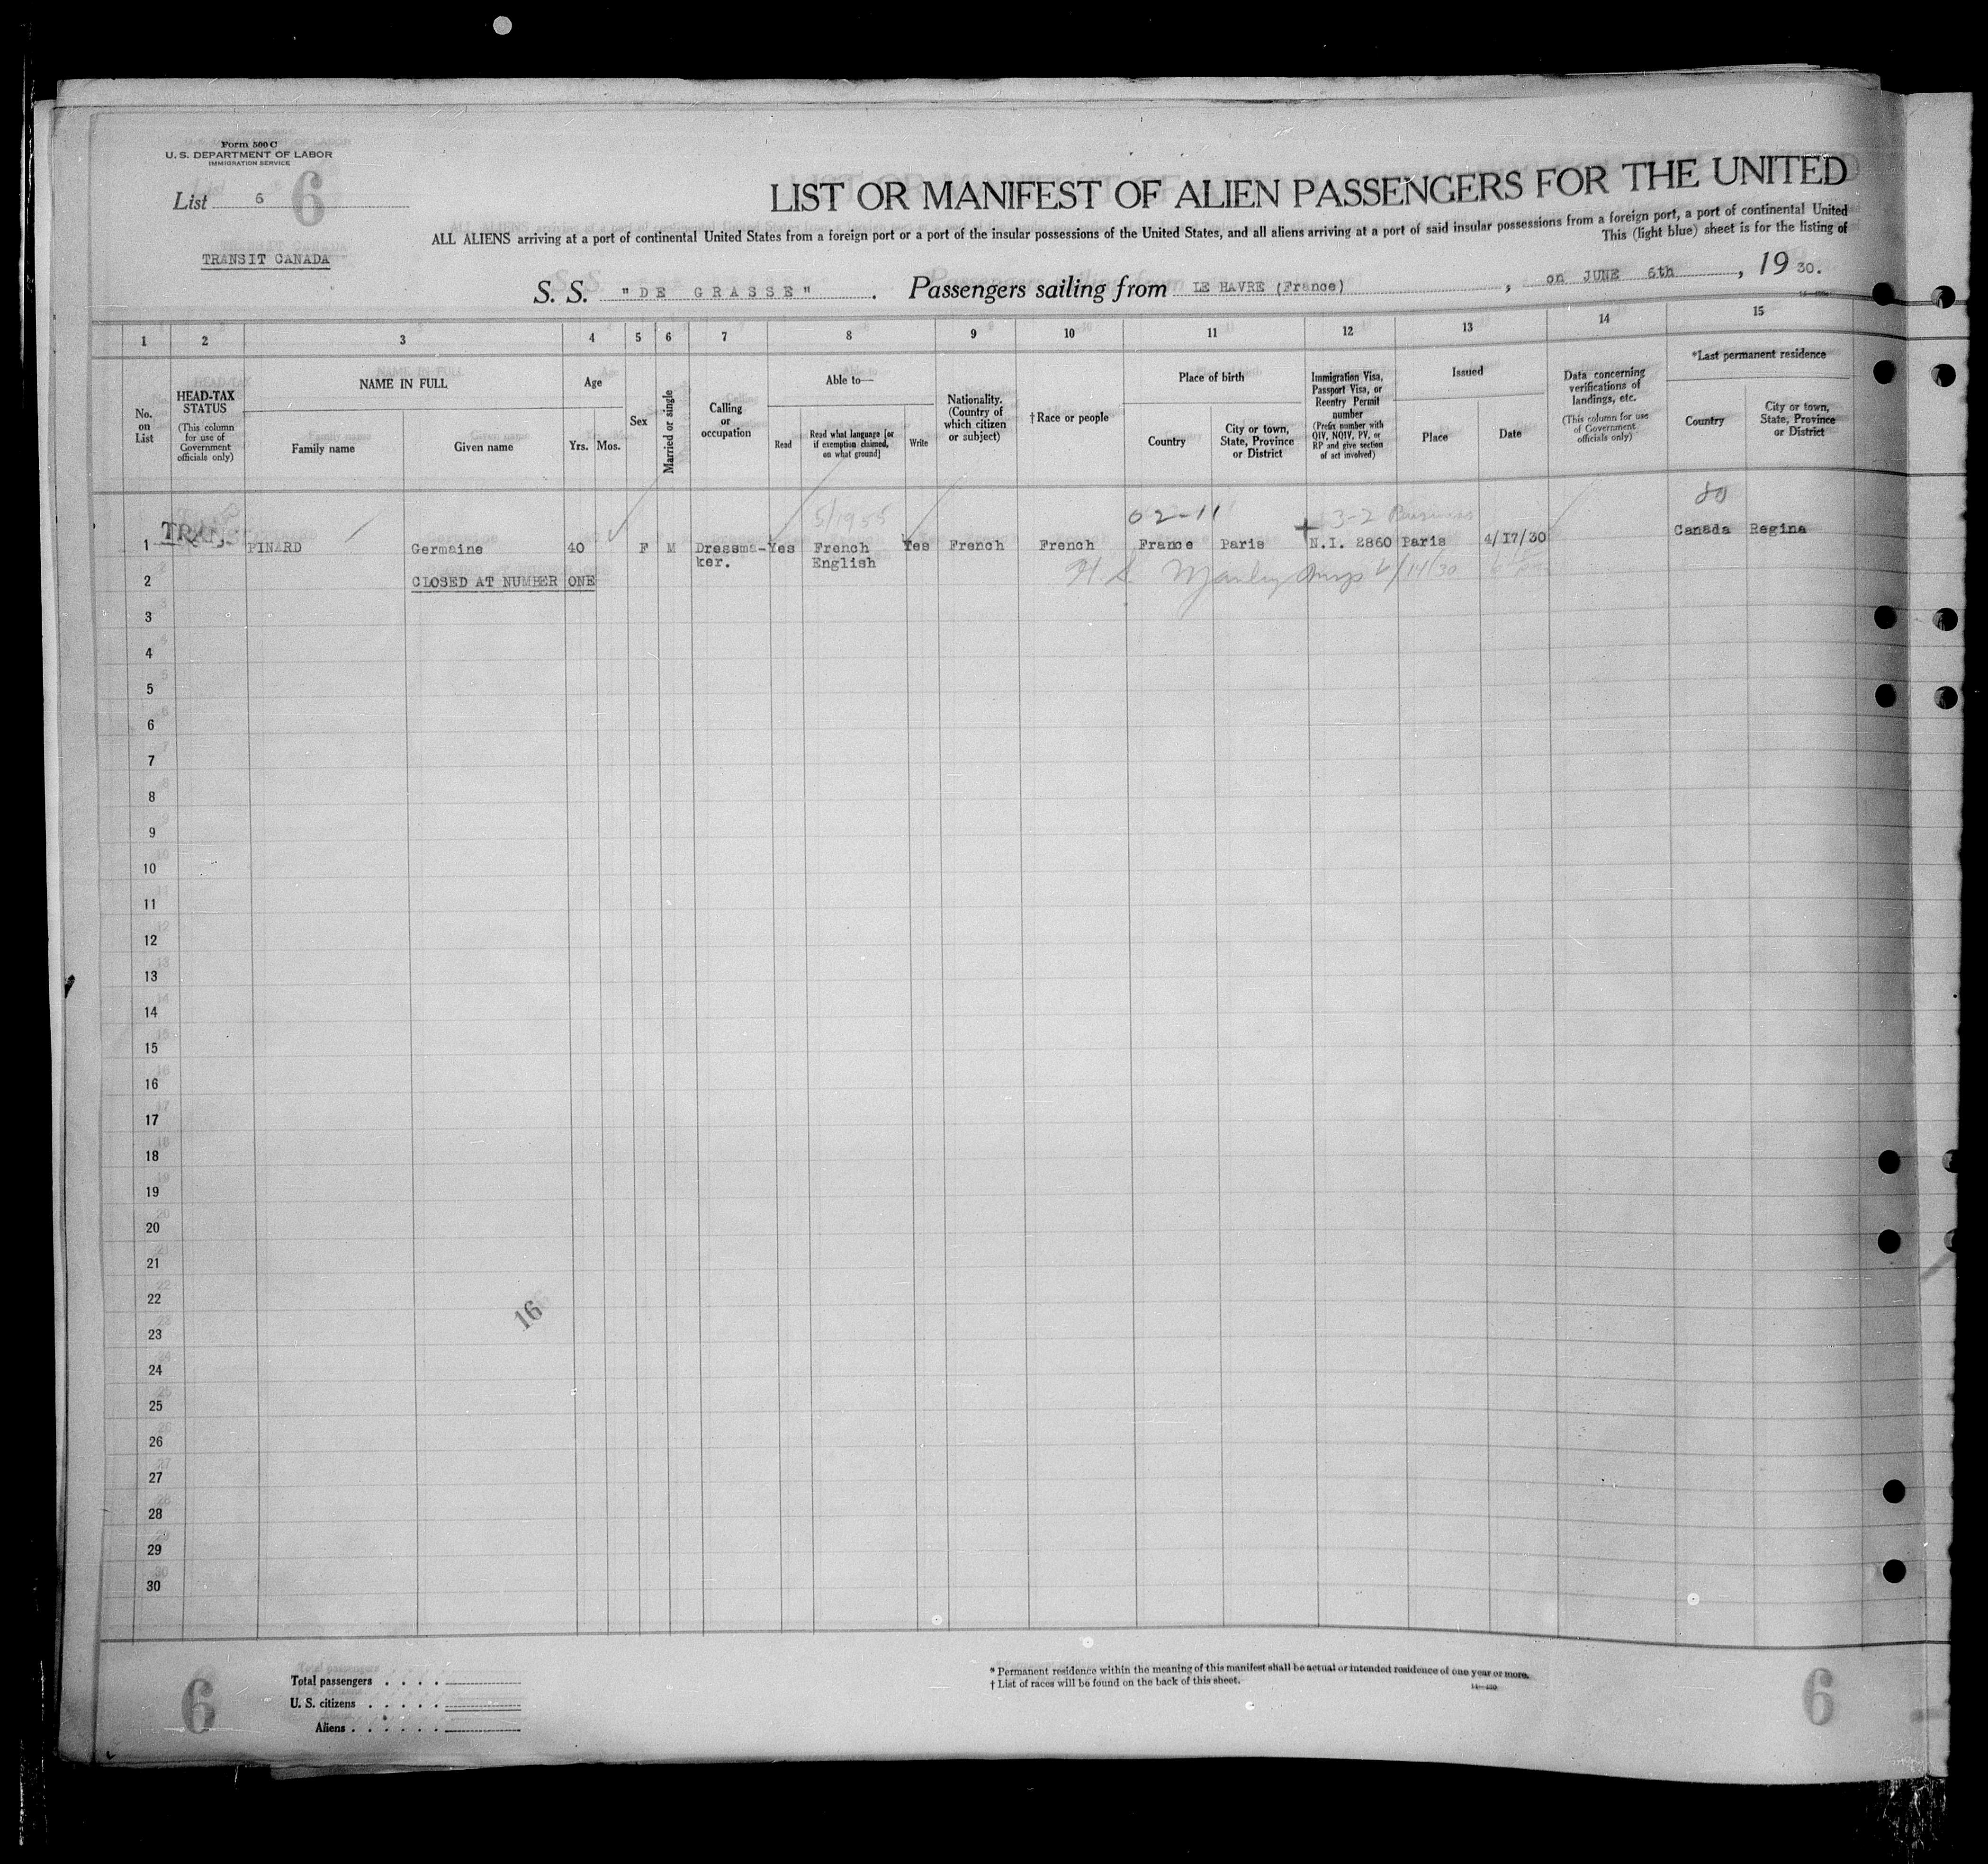 Form 500 C
U. S. DEPARTMENT OF LABOR
IMMIGRATION SERVICE
List 6 6
TRANSIT CANADA
LIST OR MANIFEST OF ALIEN PASSENGERS FOR THE UNITED
ALL ALIENS arriving at a port of continental United States from a foreign port or a port of the insular possessions of the United States, and all aliens arriving at a port of said insular possessions from a foreign port, a port of continental United
This (light blue) sheet is for the listing of
S. S. "DE GRASSE". Passengers sailing from LE HAVRE (France), on JUNE 6th, 19 30.
1 2 3 4 5 6 7 8 9 10 11 12 13 14 15
No. on List
HEAD-TAX STATUS
(This column for use of Government officials only)
NAME IN FULL
Family name
Given name
Age
Yrs. Mos.
Sex
Married or single
Calling or occupation
Able to—
Read
Read what language [or if exemption claimed, on what ground]
Write
Nationality. (Country of which citizen or subject)
†Race or people
Place of birth
Country
City or town, State, Province or District
Immigration Visa, Passport Visa, or Reentry Permit number
(Prefix number with QIV, NQIV, PV, or RP and give section of act involved)
Issued
Place
Date
Data concerning verifications of landings, etc.
(This column for use of Government officials only)
*Last permanent residence
Country
City or town, State, Province or District
02-11 3-2 Business 80
1 TRANS PINARD Germaine 40 F M Dressma- Yes French Yes French French France Paris N.I. 2860 Paris 4/17/30 Canada Regina
ker. English
2 CLOSED AT NUMBER ONE
3
4
5
6
7
8
9
10
11
12
13
14
15
16
17
18
19
20
21
22
16
23
24
25
26
27
28
29
30
6
Total passengers . . . .
U. S. citizens . . . . .
Aliens . . . . . .
* Permanent residence within the meaning of this manifest shall be actual or intended residence of one year or more.
† List of races will be found on the back of this sheet.
6